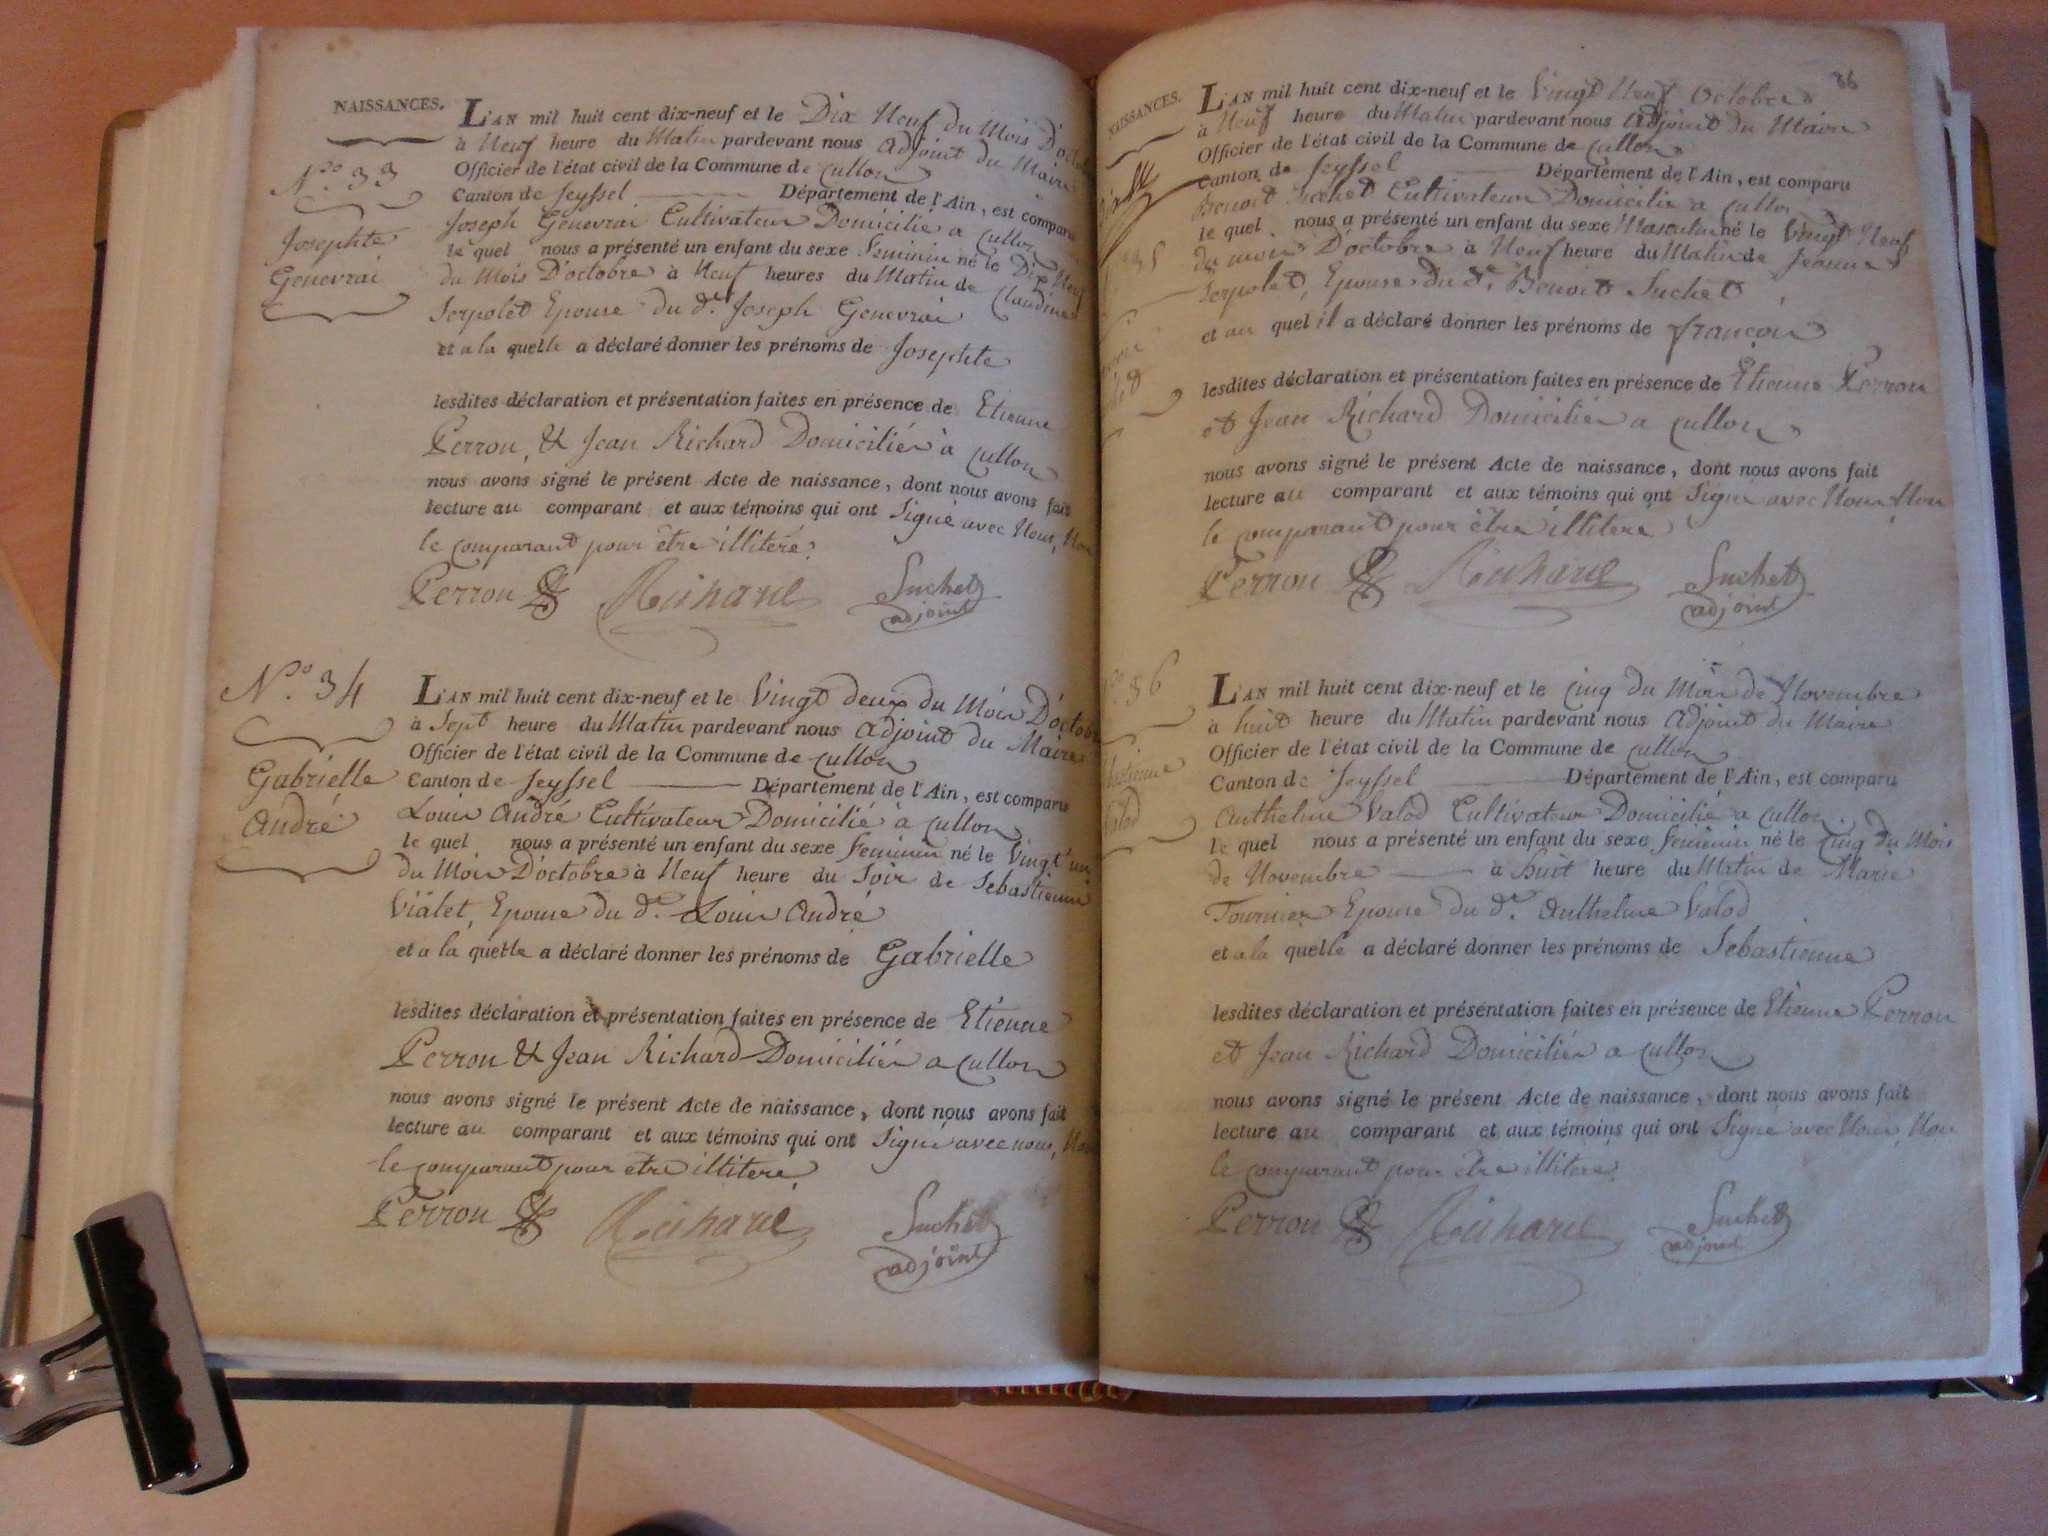 NAISSANCES.
L'AN mil huit cent dix-neuf et le Dix Neuf du Mois D'octo
à Neuf heure du Matin pardevant nous adjoint du Maire
Officier de l'état civil de la Commune de Cullon
Canton de Seyssel Département de l'Ain, est comparu
Joseph Genevrai Cultivateur Domicilié a Cullon
le quel nous a présenté un enfant du sexe Feminin né le Dix Neuf
du Mois D'octobre à Neuf heures du Matin de Claudine
Serpolet Epouse du d.t Joseph Genevrai
et a la quelle a déclaré donner les prénoms de Josephte
lesdites déclaration et présentation faites en présence de Etienne
Perron, & Jean Richard Domiciliés à Cullon
nous avons signé le présent Acte de naissance, dont nous avons fait
lecture au comparant et aux témoins qui ont Signé avec Nous, Non
le comparant pour être illiteré.
Perron Richard Suchet
adjoint
N.o 33
Josephte
Genevrai
N.o 34
Gabrielle
André
L'AN mil huit cent dix-neuf et le Vingt deux du Mois D'octobr
à Sept heure du Matin pardevant nous adjoint du Maire
Officier de l'état civil de la Commune de Cullon
Canton de Seyssel Département de l'Ain, est comparu
Louis André Cultivateur Domicilié à Cullon
le quel nous a présenté un enfant du sexe Feminin né le Vingt un
du Mois D'octobre à Neuf heure du Soir de Sebastienne
Vialet, Epouse du d.t Louis André
et a la quelle a déclaré donner les prénoms de Gabrielle
lesdites déclaration et présentation faites en présence de Etienne
Perron & Jean Richard Domiciliés a Cullon
nous avons signé le présent Acte de naissance, dont nous avons fait
lecture au comparant et aux témoins qui ont Signé avec nous, Non
le comparant pour etre illiteré
Perron Richard Suchet
adjoint
86
NAISSANCES.
L'AN mil huit cent dix-neuf et le Vingt Neuf Octobre
à Neuf heure du Matin pardevant nous adjoint du Maire
Officier de l'état civil de la Commune de Cullon
Canton de Seyssel Département de l'Ain, est comparu
Benoit Suchet Cultivateur Domicilié a Cullon
le quel nous a présenté un enfant du sexe Masculin né le Vingt Neuf
du mois D'octobre à Neuf heure du Matin de Jeanne
Serpolet, Epouse du d.t Benoit Suchet
et au quel il a déclaré donner les prénoms de françois
lesdites déclaration et présentation faites en présence de Etienne Perron
et Jean Richard Domiciliés a Cullon
nous avons signé le présent Acte de naissance, dont nous avons fait
lecture au comparant et aux témoins qui ont Signé avec Nous, Non
le comparant pour être illiteré
Perron Richard Suchet
adjoint
L'AN mil huit cent dix-neuf et le Cinq du Mois de Novembre
à huit heure du Matin pardevant nous adjoint du Maire
Officier de l'état civil de la Commune de Cullon
Canton de Seyssel Département de l'Ain, est comparu
Anthelme Valod Cultivateur Domicilié a Cullon
le quel nous a présenté un enfant du sexe Feminin né le Cinq du Mois
de Novembre à huit heure du Matin de Marie
Tournier Epouse du d.t Anthelme Valod
et a la quelle a déclaré donner les prénoms de Sebastienne
lesdites déclaration et présentation faites en présence de Etienne Perron
et Jean Richard Domiciliés a Cullon
nous avons signé le présent Acte de naissance, dont nous avons fait
lecture au comparant et aux témoins qui ont Signé avec Nous, Non
le comparant pour être illiteré
Perron Richard Suchet
adjoint